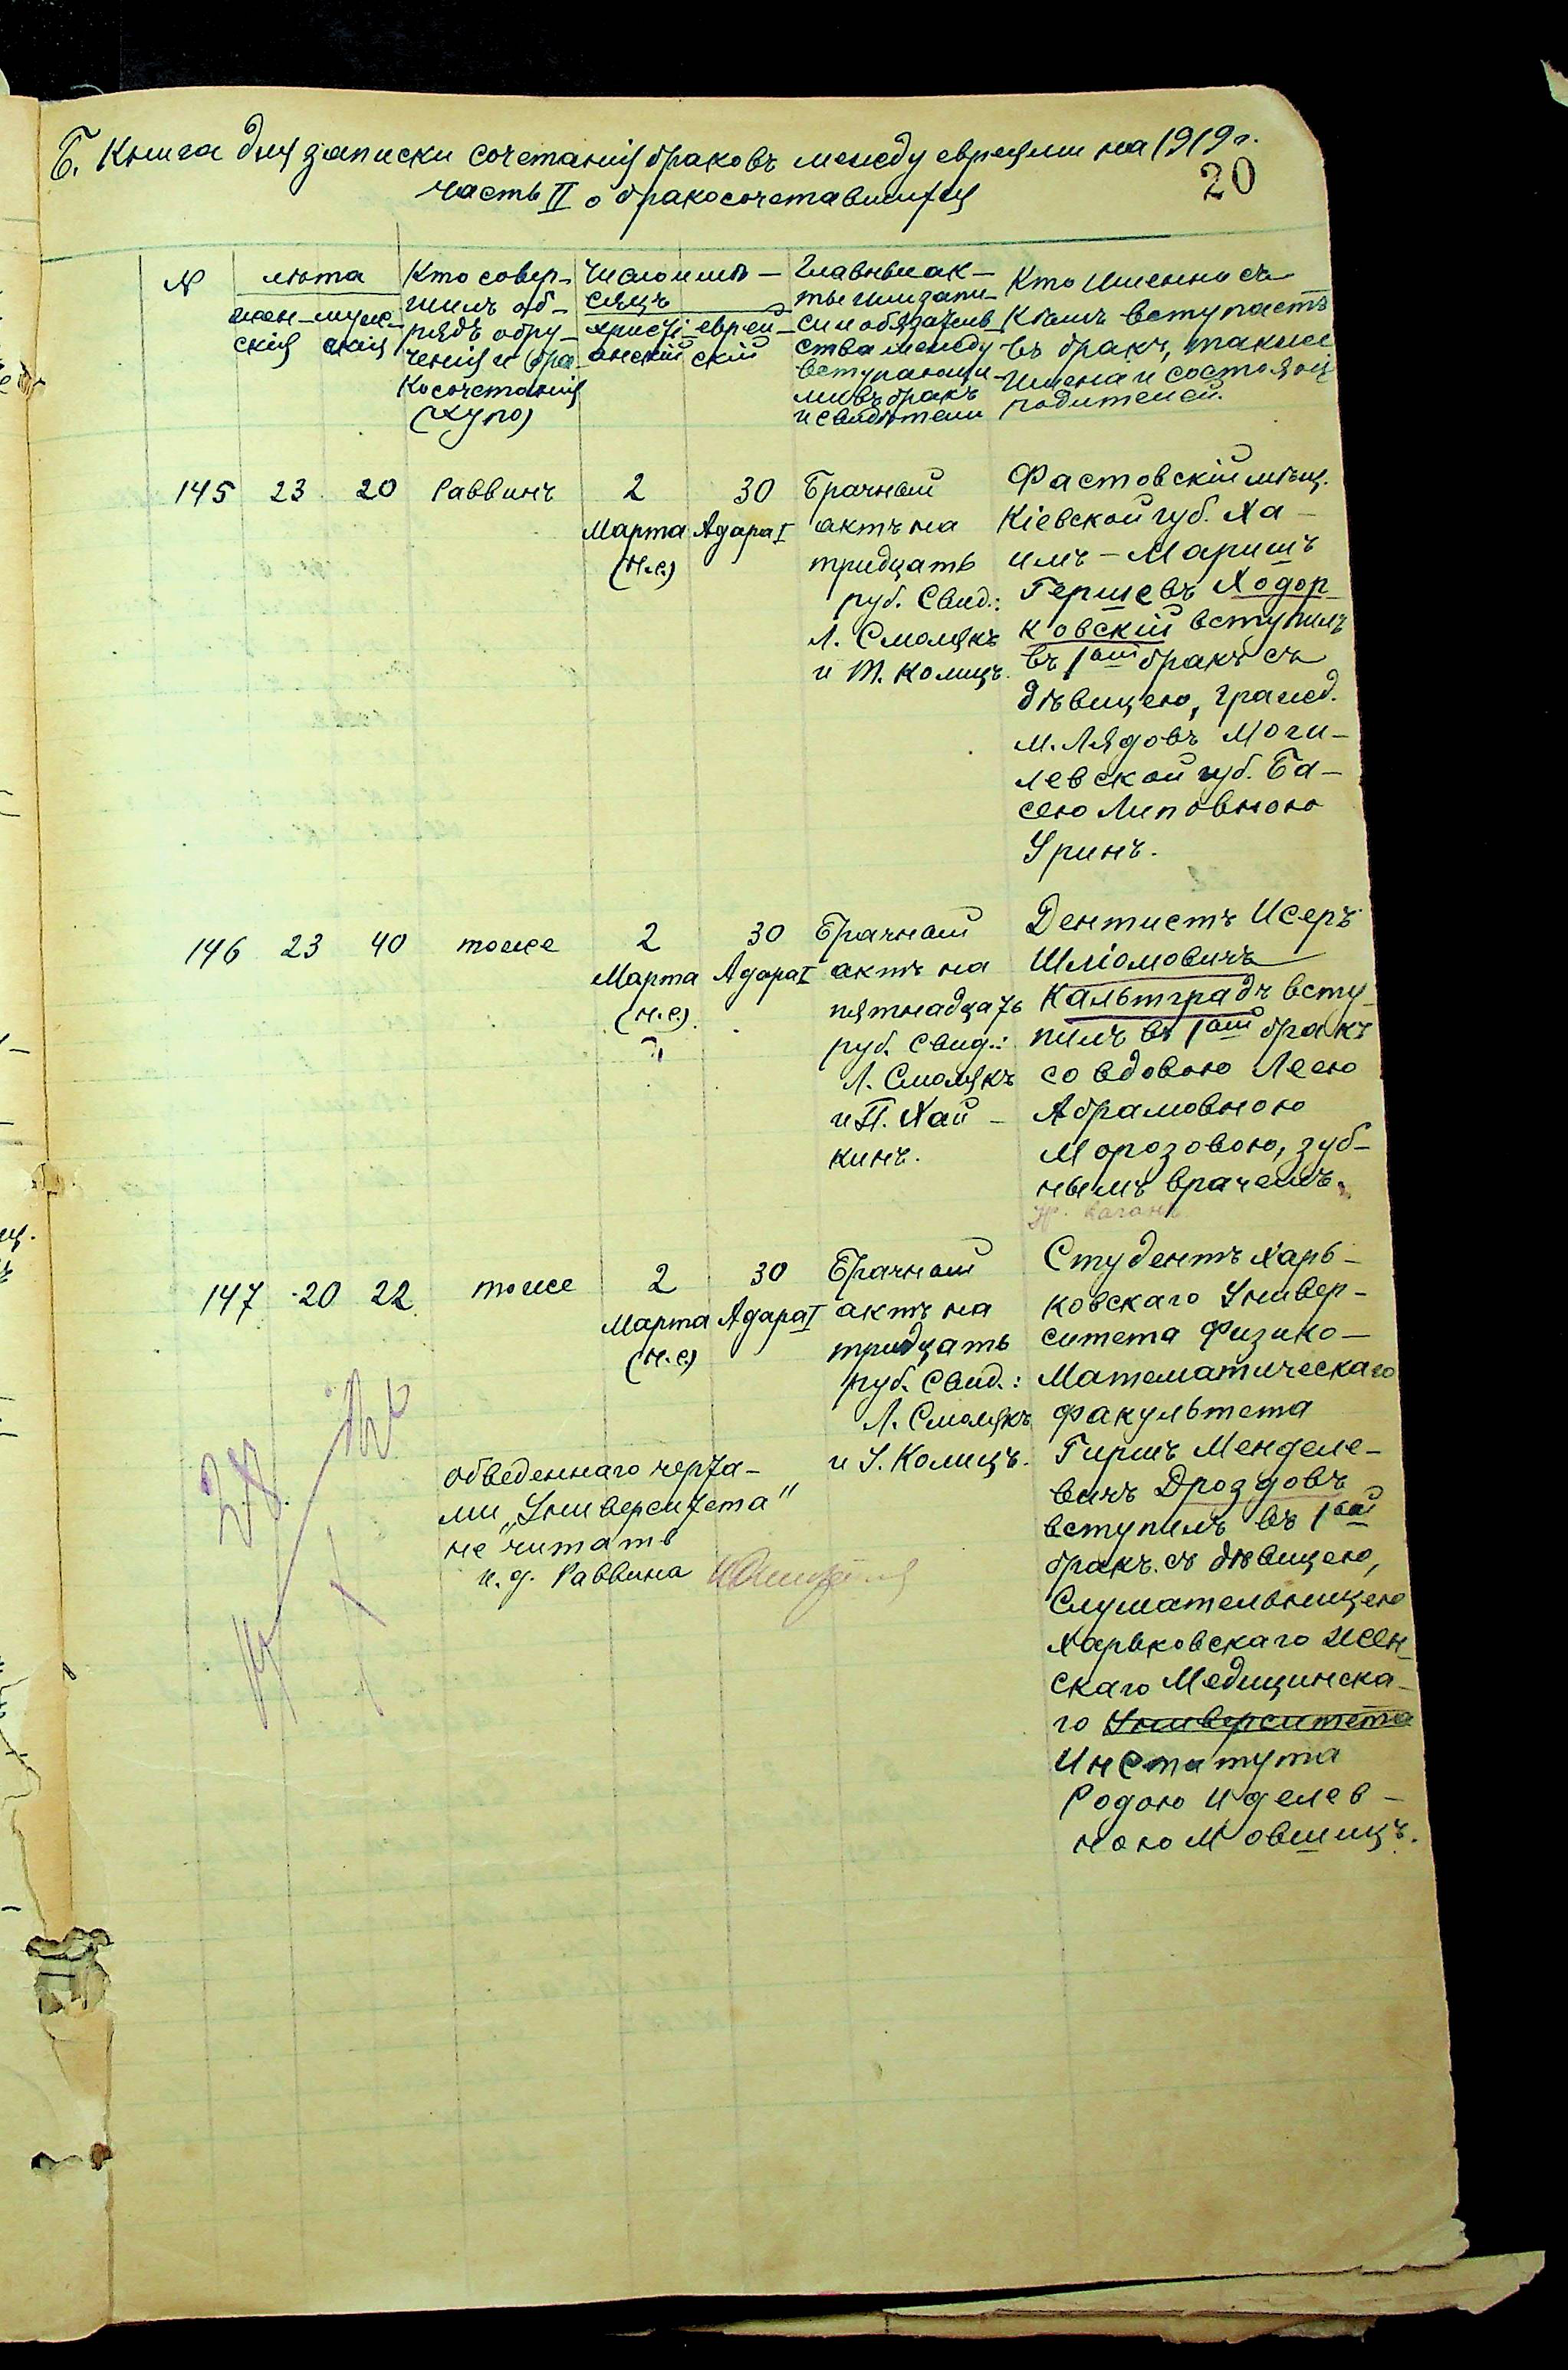 Б. Книга для записки сочетанія браковъ между евреями на 1919 г.
20
часть II о бракосочетавшихся
№
лѣта
жен-
скія
муже-
скія
Кто совер-
шилъ об-
рядъ обру-
ченія и бра-
косочетанія
(хупо)
Число и мѣ-
сяцъ
христі-
анскій
еврей-
скій
Главные ак-
ты или запи-
си и обязатель-
ства между
вступающи-
ми въ бракъ
и свидѣтели
Кто именно съ
кѣмъ вступаетъ
въ бракъ, также
имена и состояніе
родителей.
145 23 20 Раввинъ
2
Марта
(н.с.)
30
Адара I
Брачный
актъ на
тридцать
руб. Свид.:
Л. Смолякъ
и М. Колицъ.
Фастовскій мѣщ.
Кіевской губ. Ха-
имъ-Маришъ
Гершевъ Ходор-
ковскій вступилъ
въ 1ый бракъ съ
дѣвицею, гражд.
м. Лядовъ Моги-
левской губ. Ба-
сею Липовною
Уринъ.
146 23 40 тоже
2
Марта
(н.с.)
30
Адара I
Брачный
актъ на
пятнадцать
руб. Свид.:
Л. Смолякъ
и П. Хай-
кинъ.
Дентистъ Исеръ
Шліомовичъ
Кальтградъ всту-
пилъ въ 1ый бракъ
со вдовою Леею
Абрамовною
Морозовою, зуб-
нымъ врачемъ.
147 20 22 тоже
2
Марта
(н.с.)
30
Адара I
Брачный
актъ на
тридцать
руб. Свид.:
Л. Смолякъ
и У. Колицъ.
Студентъ Харь-
ковскаго Универ-
ситета Физико-
Математическаго
факультета
Гиршъ Менделе-
вичъ Дроздовъ
вступилъ въ 1ый
бракъ съ дѣвицею,
Слушательницею
Харьковскаго Жен-
скаго Медицинска-
го Университета
Института
Родою Иделев-
ною Мовшицъ.
Обведеннаго черта-
ми „Университета"
не читать
и. д. Раввина